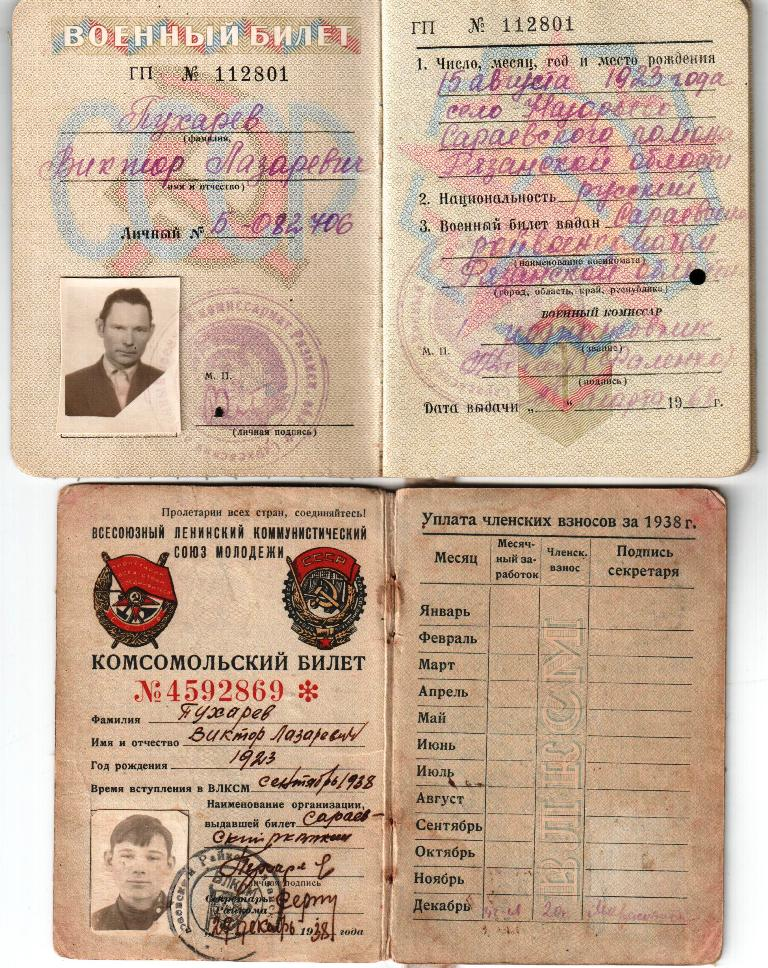 ВОЕННЫЙ БИЛЕТ
ГП № 112801
Пухарев
(фамилия,
Виктор Лазаревич
имя и отчество)
Личный № Б-082706
М. П.
(личная подпись)
ГП № 112801
1. Число, месяц, год и место рождения
15 августа 1923 года
село
Сараевского района
Рязанской области
2. Национальность русский
3. Военный билет выдан Сараевским
райвоенкоматом
(наименование военкомата)
Рязанской области
(город, область, край, республика)
ВОЕННЫЙ КОМИССАР
подполковник
М. П. (звание)
(подпись)
Дата выдачи „ “ марта 1968 г.
Пролетарии всех стран, соединяйтесь!
ВСЕСОЮЗНЫЙ ЛЕНИНСКИЙ КОММУНИСТИЧЕСКИЙ
СОЮЗ МОЛОДЕЖИ
СССР
КОМСОМОЛЬСКИЙ БИЛЕТ
№ 4592869 *
Фамилия Пухарев
Имя и отчество Виктор Лазаревич
Год рождения 1923
Время вступления в ВЛКСМ сентябрь 1938
Наименование организации,
выдавшей билет Сараев-
ский
Личная подпись
Секретарь
Райкома
декабрь 1938 года
ВЛКСМ
Уплата членских взносов за 1938 г.
Месяц Месяч-ный за-работок Членск. взнос Подпись секретаря
Январь
Февраль
Март
Апрель
Май
Июнь
Июль
Август
Сентябрь
Октябрь
Ноябрь
Декабрь
ВЛКСМ